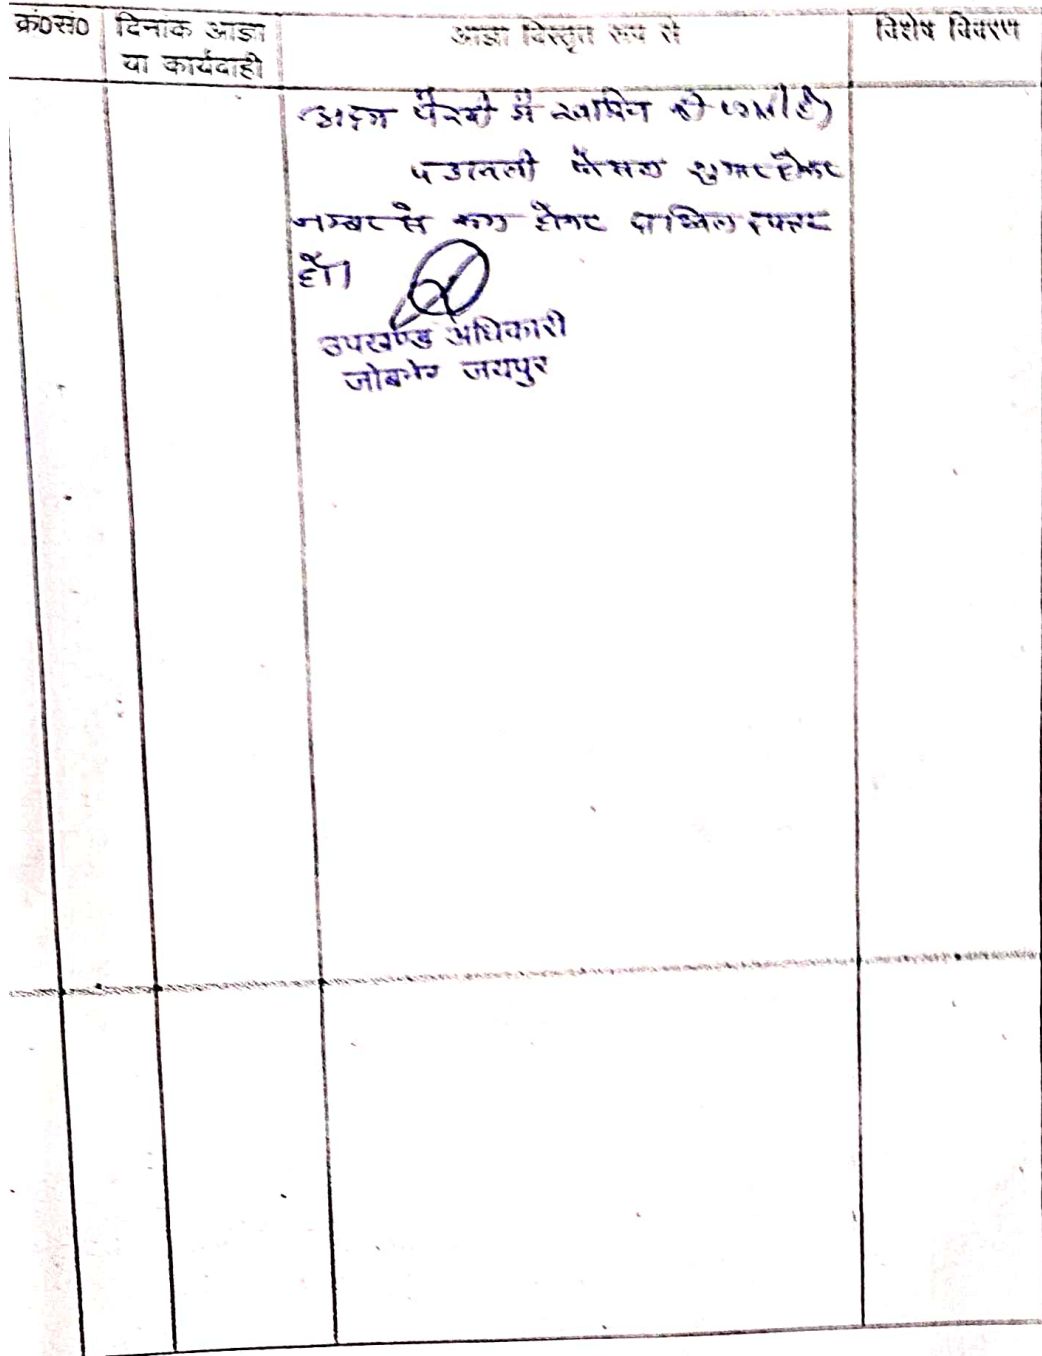 क्रं0सं0 दिनांक आज्ञा या कार्यवाही आज्ञा विस्तृत रूप से विशेष विवरण
अदम पैरवी में खारिज की जाती है।
पत्रावली फैसल शुमार होकर
नम्बर से कम होकर दाखिल दफ्तर
हो।
उपखण्ड अधिकारी
जोबनेर जयपुर